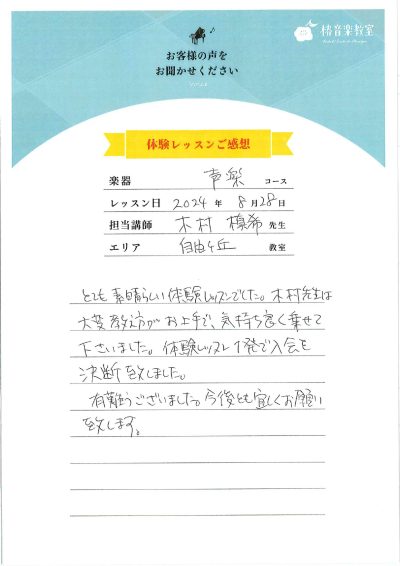 椿音楽教室
お客様の声を
お聞かせください
体験レッスンご感想
楽器 声楽 コース
レッスン日 2024年 8月28日
担当講師 木村 槙希 先生
エリア 自由ヶ丘 教室
とても素晴らしい体験レッスンでした。木村先生は
大変教え方がお上手で、気持ち良く乗せて
下さいました。体験レッスン1発で入会を
決断致しました。
有難うございました。今後とも宜しくお願い
致します。